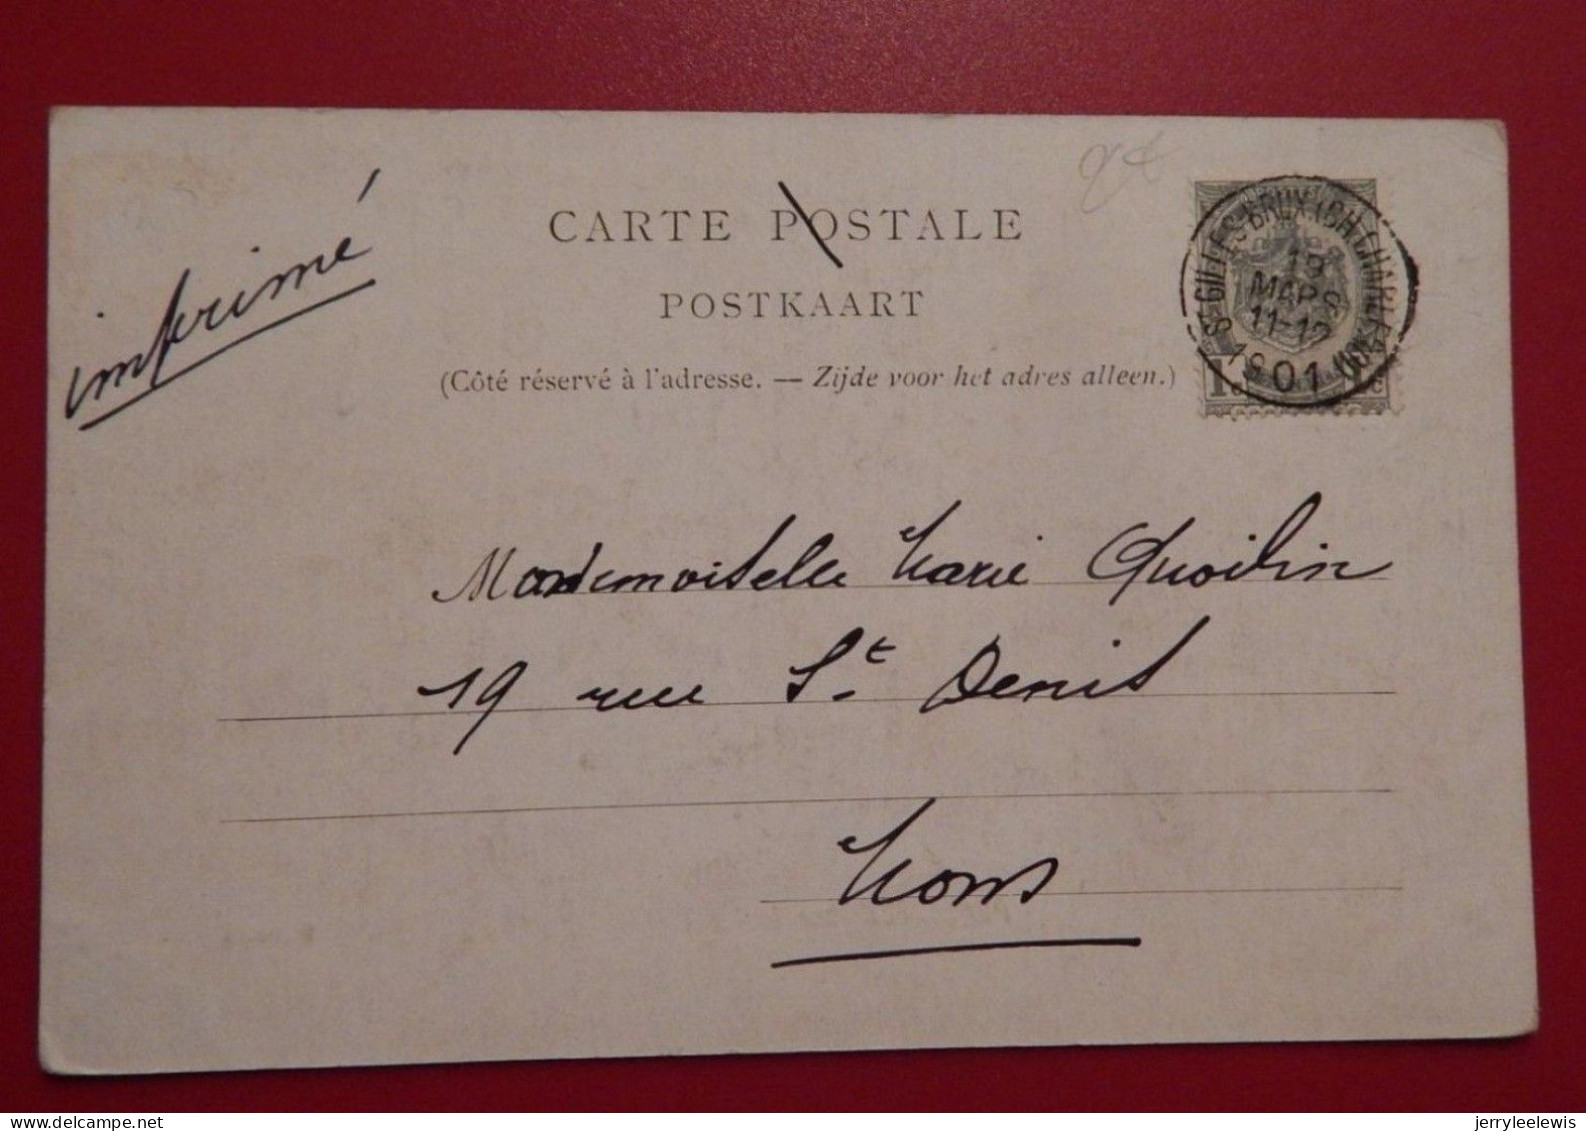 imprimé
CARTE POSTALE
POSTKAART
(Côté réservé à l'adresse. — Zijde voor het adres alleen.)
ST GILLES-BRUX. (CH. CHARLEROI)
19
MARS
11-12
1901
1c 1c
Mademoiselle Marie Quoilin
19 rue St. Denis
Mons
www.delcampe.net
jerryleelewis